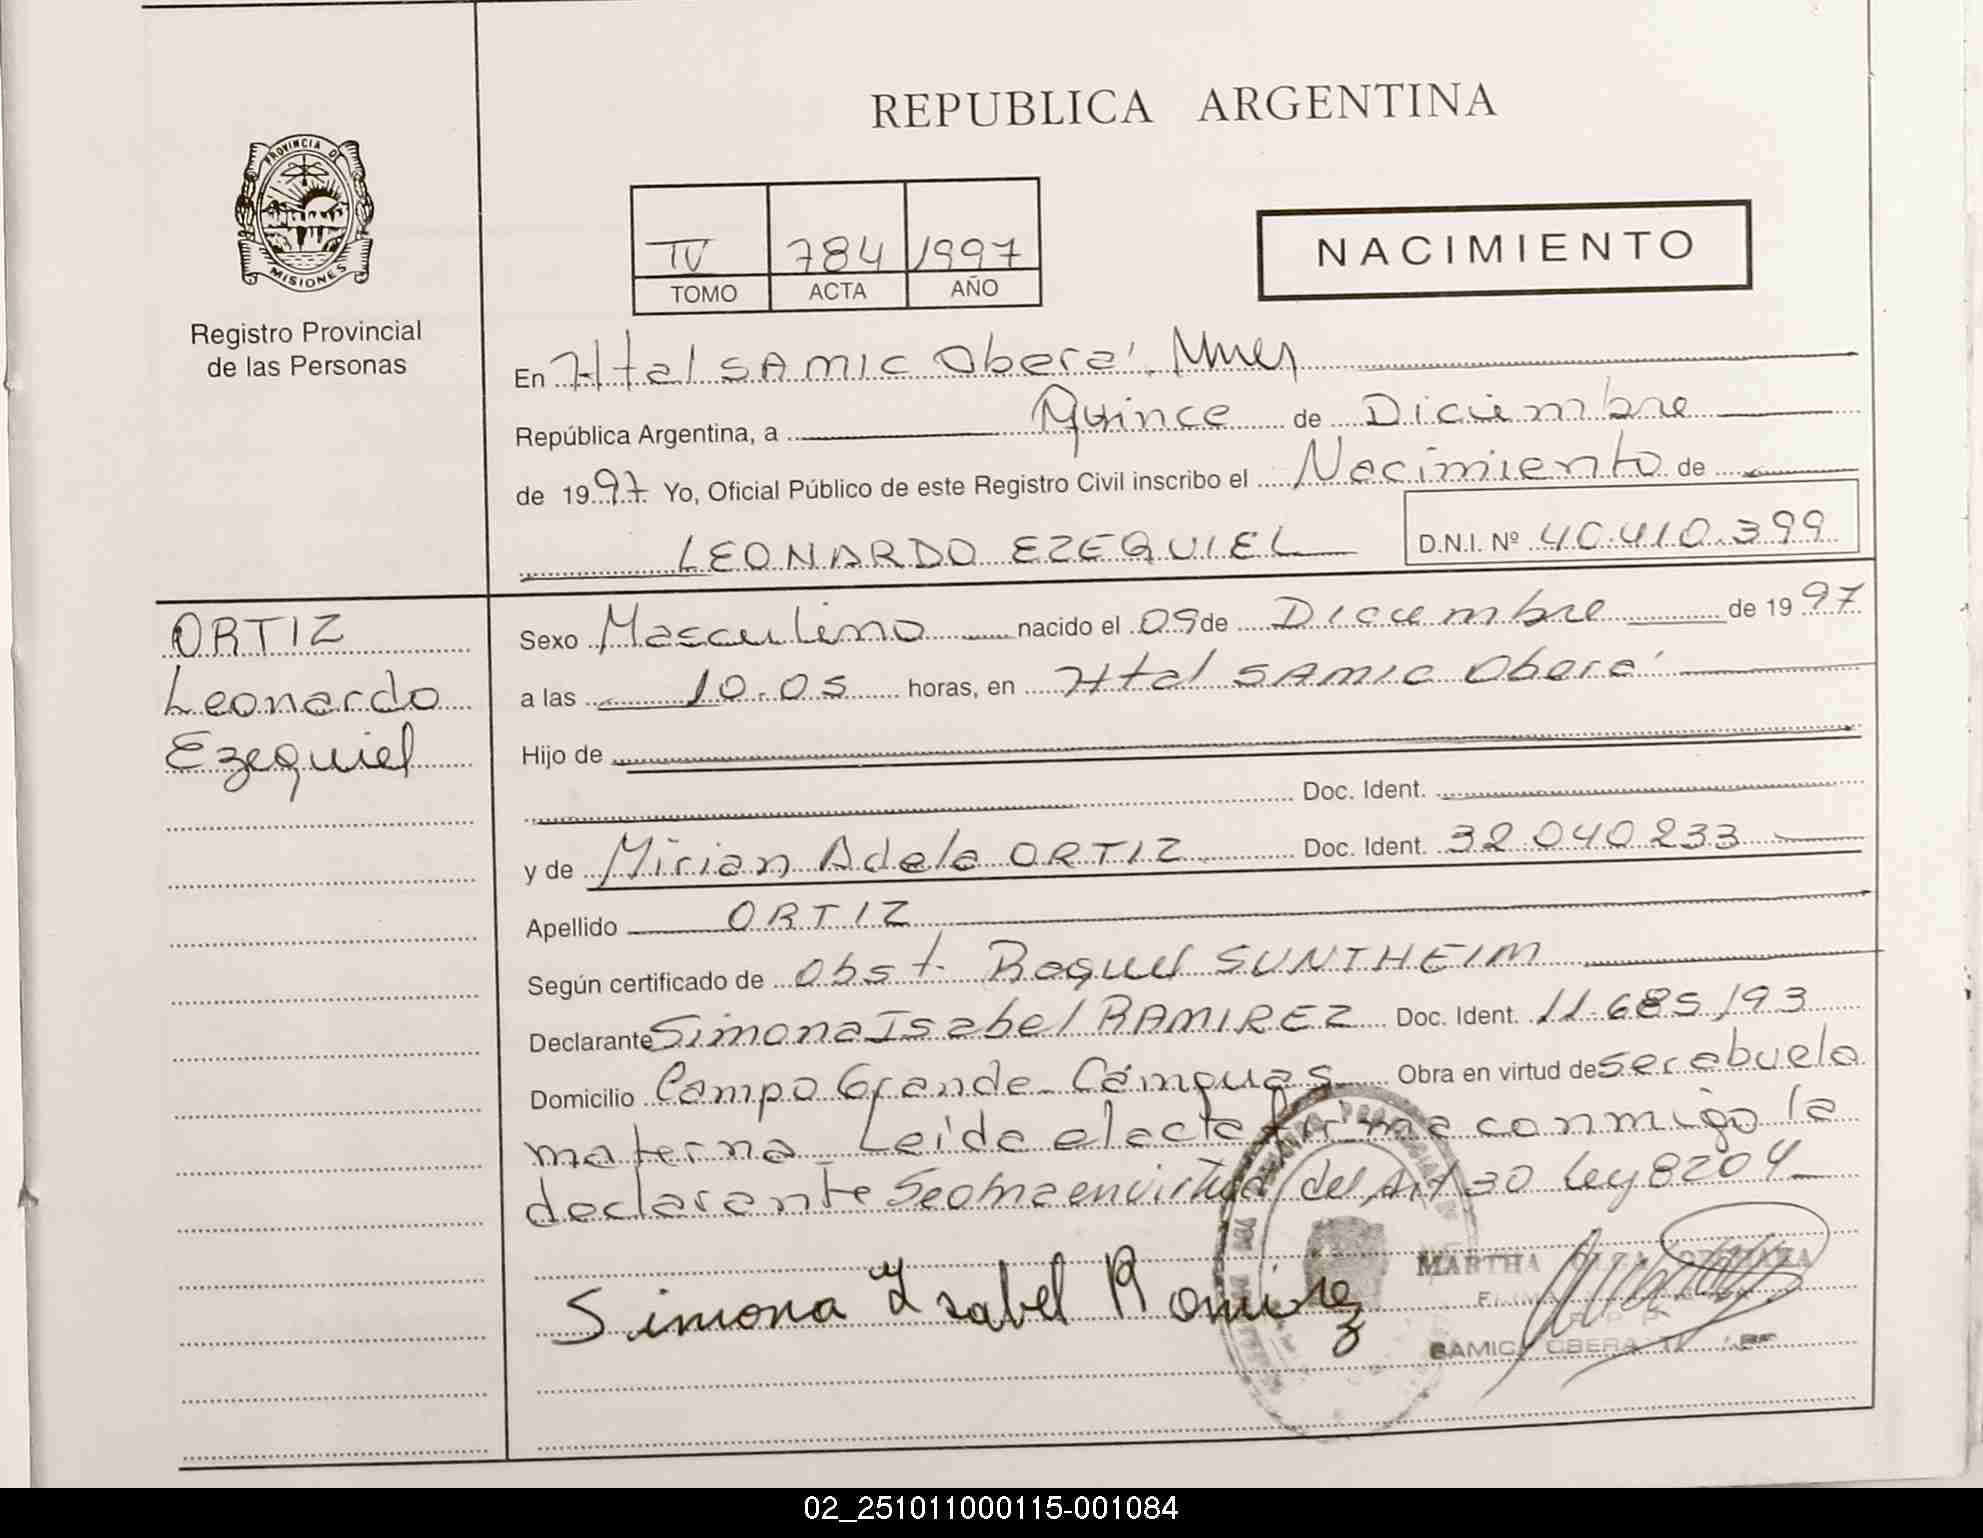 REPUBLICA ARGENTINA
PROVINCIA DE
MISIONES
Registro Provincial
de las Personas
IV 784 1997
TOMO ACTA AÑO
NACIMIENTO
En Htal SAMIC Oberá. Mnes
República Argentina, a Quince de Diciembre
de 1997 Yo, Oficial Público de este Registro Civil inscribo el Nacimiento de
LEONARDO EZEQUIEL D.N.I. Nº 40.410.399
ORTIZ
Leonardo
Ezequiel
Sexo Masculino nacido el 09 de Diciembre de 1997
a las 10.05 horas, en Htal SAMIC Oberá
Hijo de
Doc. Ident.
y de Mirian Adela ORTIZ Doc. Ident. 32.040.233
Apellido ORTIZ
Según certificado de Obst. Raquel SUNTHEIM
Declarante Simona Isabel RAMIREZ Doc. Ident. 11.685.193
Domicilio Campo Grande - Cainguas Obra en virtud de ser abuela
materna. Leída el acta firma conmigo la
declarante en virtud del Art 30 Ley 8204
Simona Isabel Ramirez
MARTHA
SAMIC OBERA
02_251011000115-001084